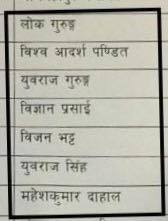 लोक गुरुङ्ग
विश्व आदर्श पण्डित
युवराज गुरुङ्ग
विज्ञान प्रसाई
विजन भट्ट
युवराज सिंह
महेशकुमार दाहाल